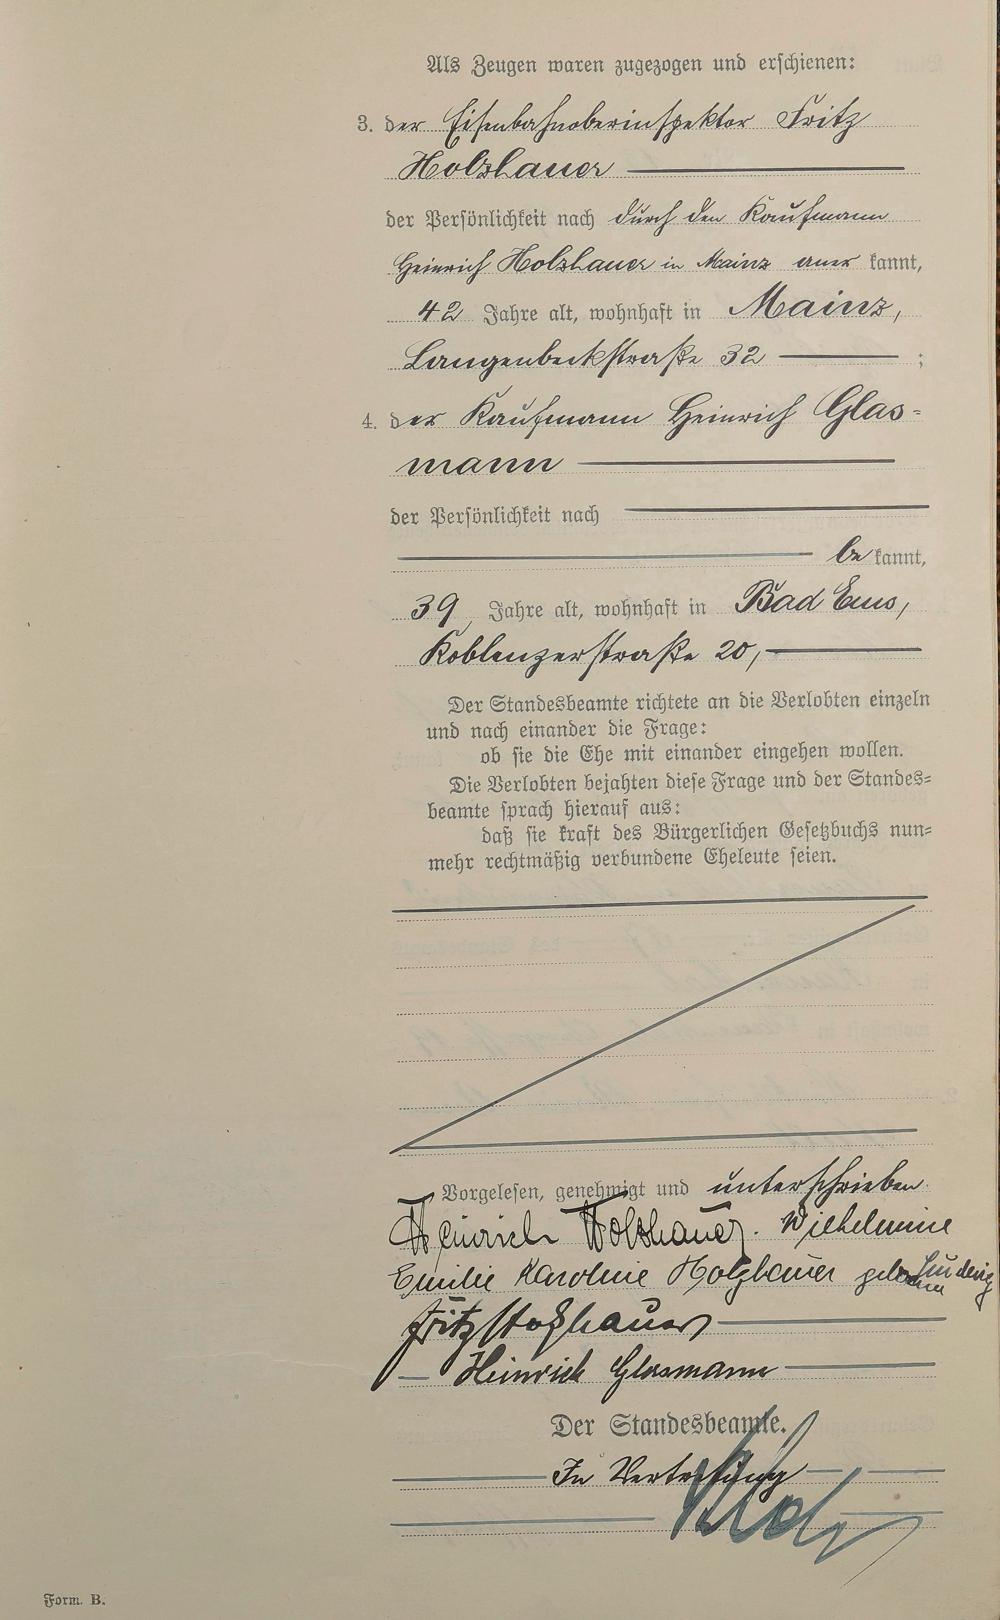 Als Zeugen waren zugezogen und erschienen:
3. der Eisenbahnoberinspektor Fritz
Holzhauer
der Persönlichkeit nach durch den Kaufmann
Heinrich Holzhauer in Mainz aner kannt,
42 Jahre alt, wohnhaft in Mainz,
Langenbeckstraße 32 ;
4. der Kaufmann Heinrich Glas-
mann
der Persönlichkeit nach
be kannt,
39 Jahre alt, wohnhaft in Bad Ems,
Koblenzerstraße 20,
Der Standesbeamte richtete an die Verlobten einzeln
und nach einander die Frage:
ob sie die Ehe mit einander eingehen wollen.
Die Verlobten bejahten diese Frage und der Standes-
beamte sprach hierauf aus:
daß sie kraft des Bürgerlichen Gesetzbuchs nun-
mehr rechtmäßig verbundene Eheleute seien.
Vorgelesen, genehmigt und unterschrieben
Heinrich Holzhauer. Wilhelmine
Emilie Karoline Holzhauer geborene Ludwig
Fritz Holzhauer
Heinrich Glasmann
Der Standesbeamte.
In Vertretung
Form. B.